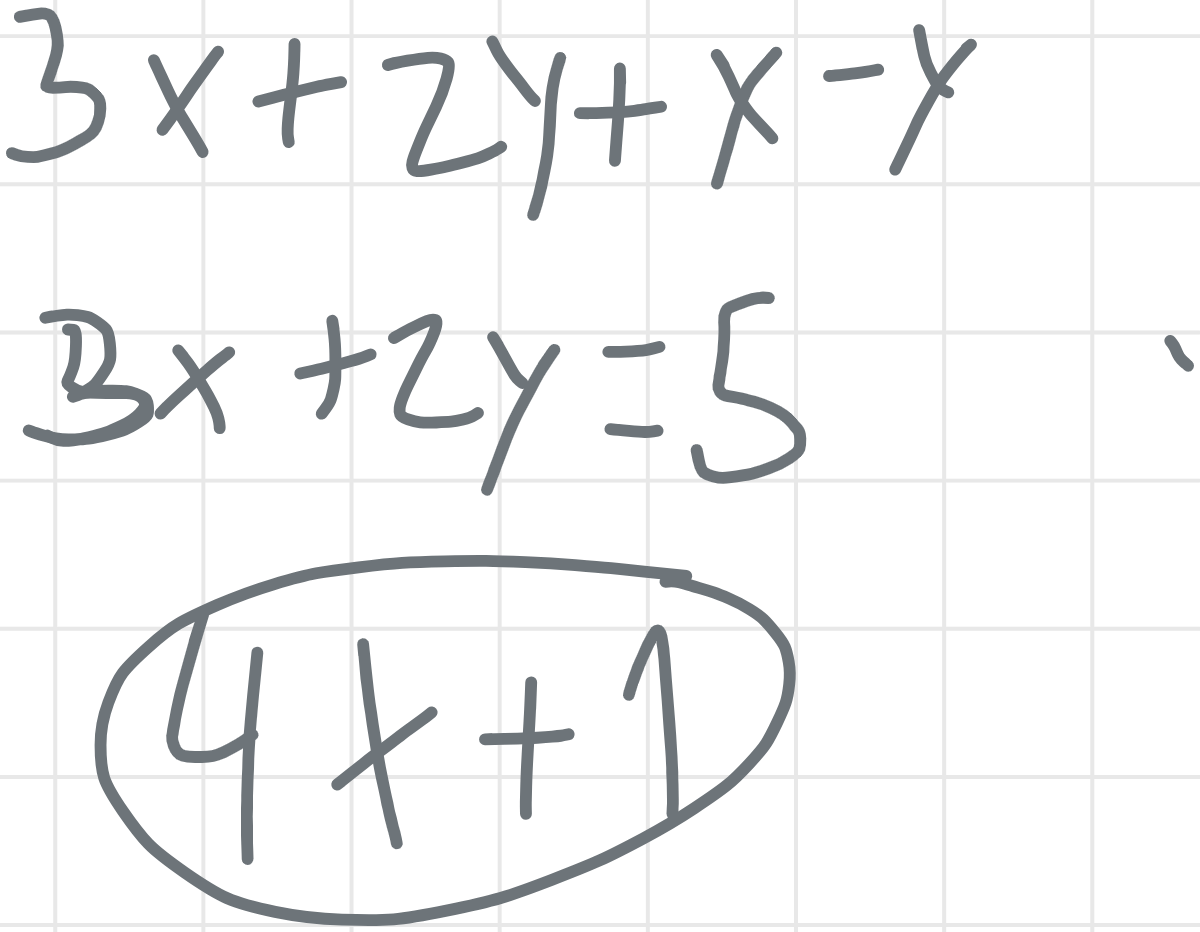 3x+2y+x-y
3x+2y=5
4x+1